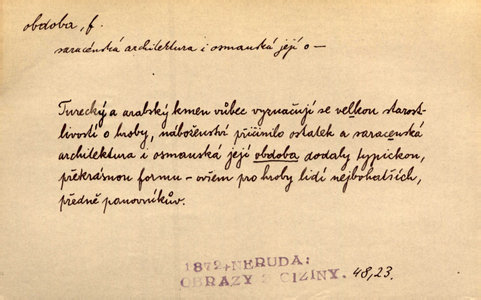 obdoba, f.
saracénská architektura i osmanská její o—
Turecký a arabský kmen vůbec vyznačují se velkou starost-
livostí o hroby, náboženství přičinilo ostatek a saracenská
architektura i osmanská její obdoba dodaly typickou,
překrásnou formu – ovšem pro hroby lidí nejbohatších,
předně panovníkův.
1872, NERUDA:
OBRAZY Z CIZINY. 48,23.